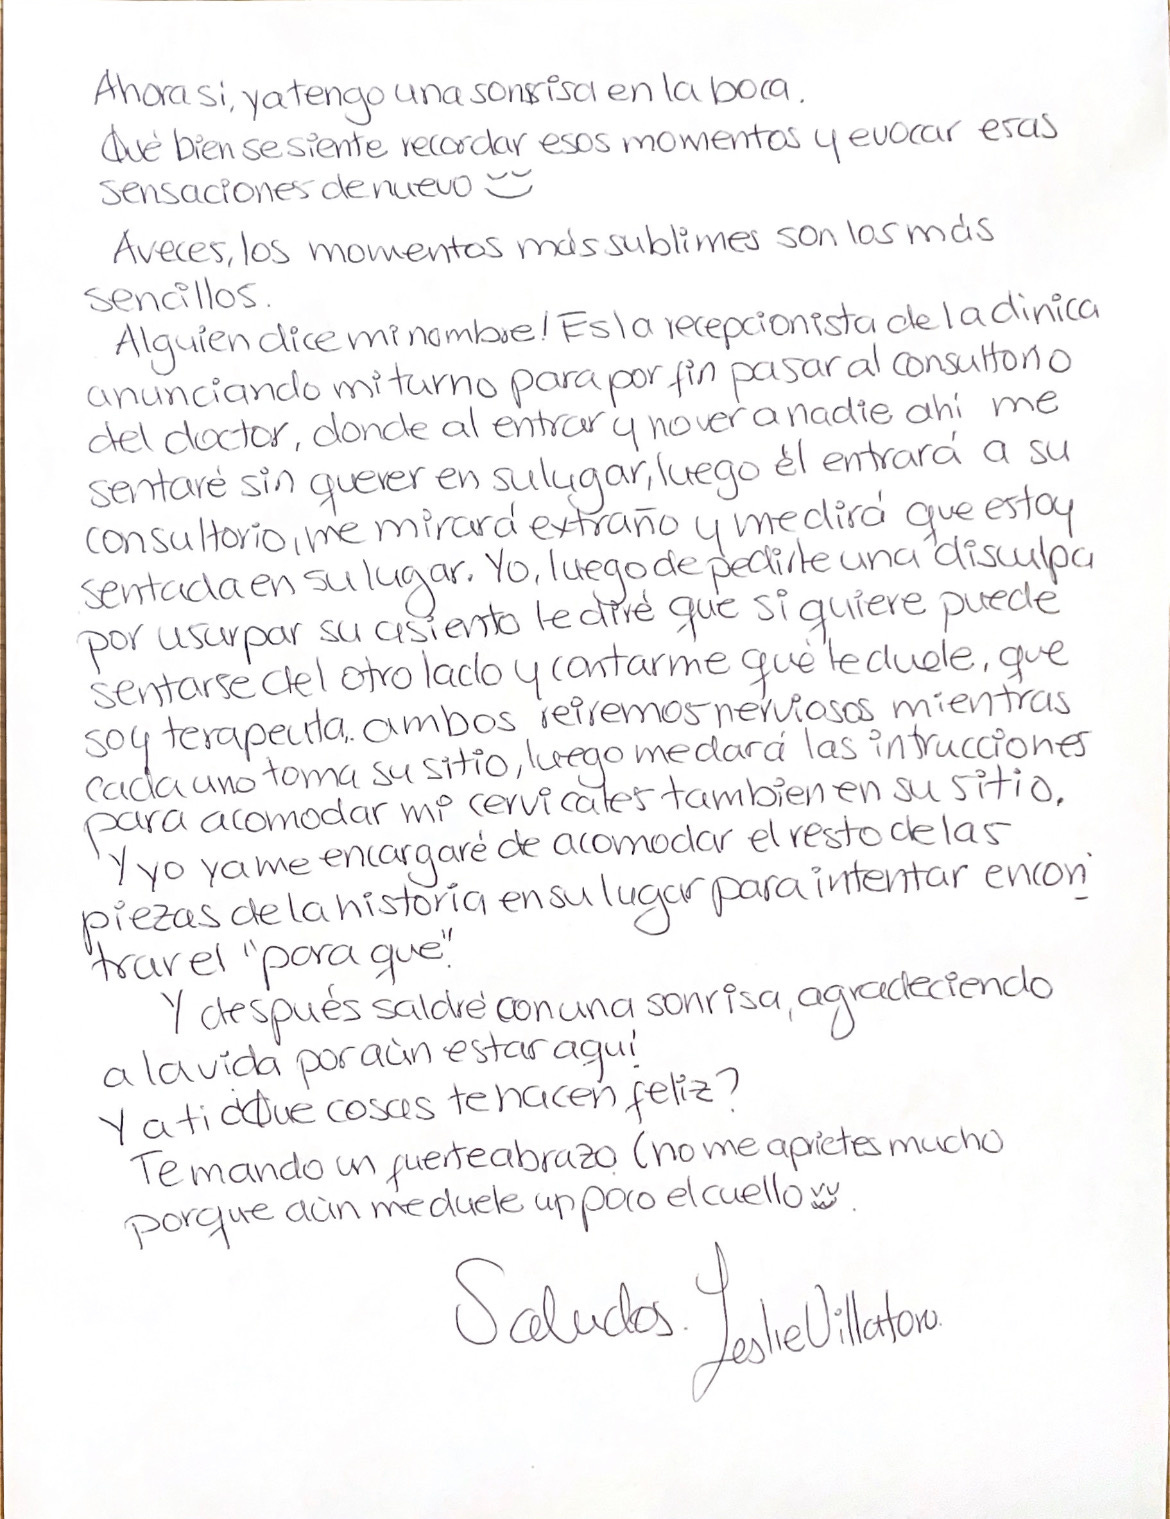 Ahora si, ya tengo una sonrisa en la boca.
Qué bien se siente recordar esos momentos y evocar esas
sensaciones de nuevo
A veces, los momentos más sublimes son los más
sencillos.
Alguien dice mi nombre! Es la recepcionista de la clínica
anunciando mi turno para por fin pasar al consultorio
del doctor, donde al entrar y no ver a nadie ahí me
sentaré sin querer en su lugar, luego él entrará a su
consultorio, me mirará extraño y me dirá que estoy
sentada en su lugar. Yo, luego de pedirle una disculpa
por usurpar su asiento le diré que si quiere puede
sentarse del otro lado y contarme qué le duele, que
soy terapeuta. ambos reiremos nerviosos mientras
cada uno toma su sitio, luego me dará las intrucciones
para acomodar mi cervicales tambien en su sitio.
Y yo ya me encargaré de acomodar el resto de las
piezas de la historia en su lugar para intentar encon-
trar el "para que".
Y después saldré con una sonrisa, agradeciendo
a la vida por aún estar aquí
Y a ti ¿Que cosas te hacen feliz?
Te mando un fuerte abrazo (no me aprietes mucho
porque aún me duele un poco el cuello.
Saludos. Leslie Villatoro.